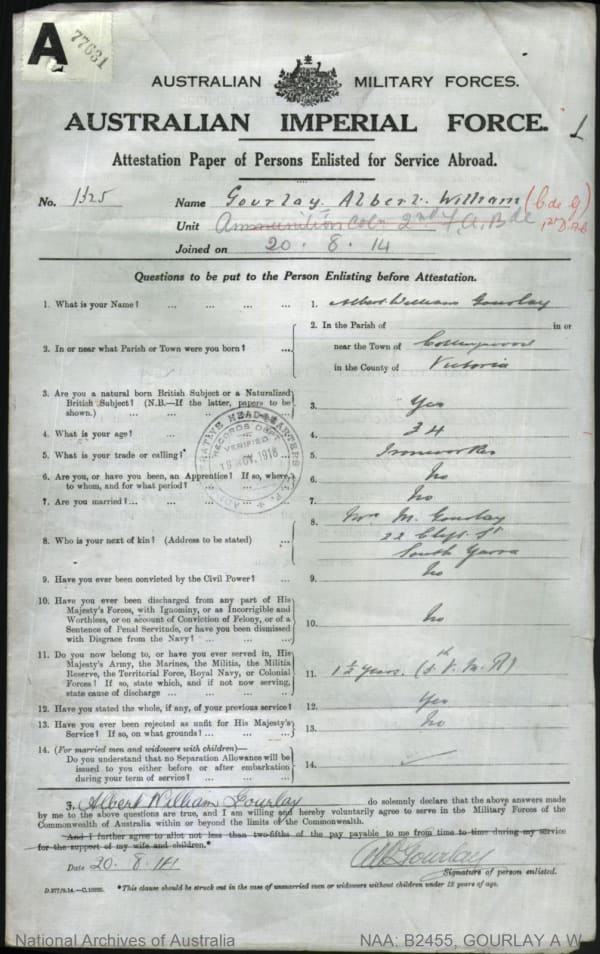 A
77631
AUSTRALIAN MILITARY FORCES.
AUSTRALIAN IMPERIAL FORCE.
Attestation Paper of Persons Enlisted for Service Abroad.
No. 1325 Name Gourlay. Albert. William
Unit Ammunition Coln 2nd F.A. Bde
Joined on 20 . 8 . 14
Questions to be put to the Person Enlisting before Attestation.
1. What is your Name? ... ... ... ... 1. Albert William Gourlay
2. In or near what Parish or Town were you born? ... 2. In the Parish of in or
near the Town of Collingwood
in the County of Victoria
3. Are you a natural born British Subject or a Naturalized
British Subject? (N.B.—If the latter, papers to be
shown.) ... ... ... ... 3. Yes
4. What is your age? ... ... 4. 34
5. What is your trade or calling? 5. Ironworker
6. Are you, or have you been, an Apprentice? If so, where,
to whom, and for what period? 6. No
7. Are you married? ... ... 7. No
8. Who is your next of kin? (Address to be stated) ... 8. Mrs M. Gourlay
22 St
South Yarra
9. Have you ever been convicted by the Civil Power? ... 9. No
10. Have you ever been discharged from any part of His
Majesty's Forces, with Ignominy, or as Incorrigible and
Worthless, or on account of Conviction of Felony, or of a
Sentence of Penal Servitude, or have you been dismissed
with Disgrace from the Navy? ... ... ... 10. No
11. Do you now belong to, or have you ever served in, His
Majesty's Army, the Marines, the Militia, the Militia
Reserve, the Territorial Force, Royal Navy, or Colonial
Forces? If so, state which, and if not now serving,
state cause of discharge ... ... ... 11. 1½ years.
12. Have you stated the whole, if any, of your previous service? 12. Yes
13. Have you ever been rejected as unfit for His Majesty's
Service? If so, on what grounds? ... ... 13. No
14. (For married men and widowers with children)—
Do you understand that no Separation Allowance will be
issued to you either before or after embarkation
during your term of service? ... ... ... 14. ✓
RECORDS DEPT
VERIFIED
19 NOV. 1918
HEADQUARTERS
I, Albert William Gourlay do solemnly declare that the above answers made
by me to the above questions are true, and I am willing and hereby voluntarily agree to serve in the Military Forces of the
Commonwealth of Australia within or beyond the limits of the Commonwealth.
And I further agree to allot not less than two-fifths of the pay payable to me from time to time during my service
for the support of my wife and children.*
Date 20. 8. 14 AW Gourlay
Signature of person enlisted.
*This clause should be struck out in the case of unmarried men or widowers without children under 18 years of age.
National Archives of Australia NAA: B2455, GOURLAY A W